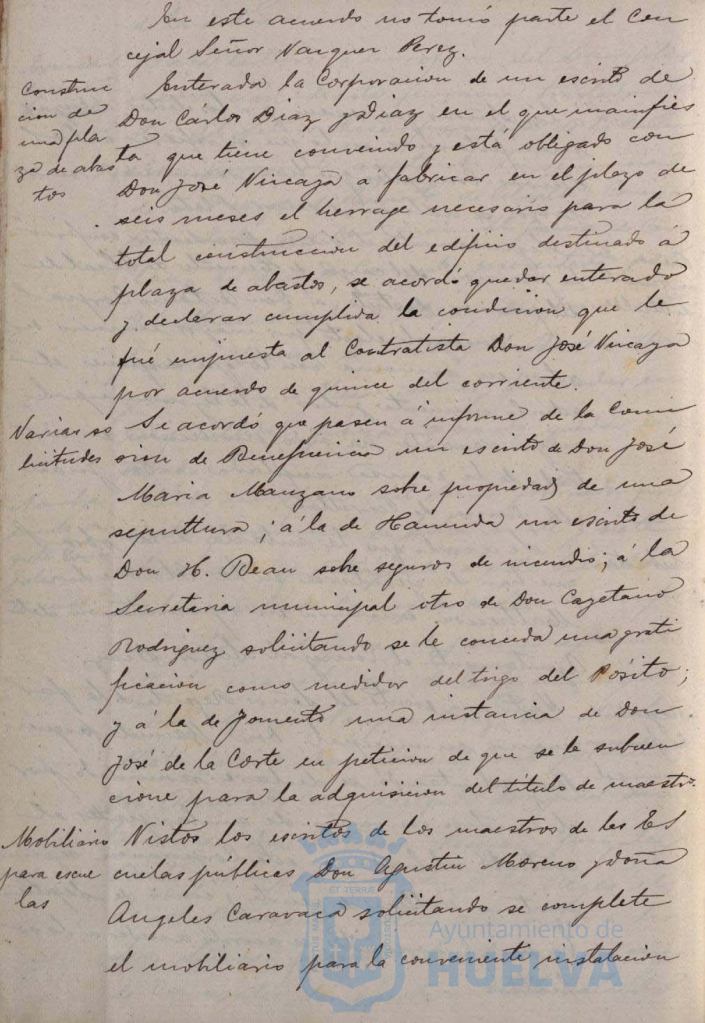 En este acuerdo no tomó parte el Con
cejal Señor Vazquez Perez.
Construc
cion de
una pla
za de abas
tos
Enterada la Corporacion de un escrito de
Don Cárlos Diaz y Diaz en el que manifies
ta que tiene convenido y está obligado con
Don José Vizcaya á fabricar en el plazo de
seis meses el herrage necesario para la
total construccion del edificio destinado á
plaza de abastos, se acordó quedar enterado
y declarar cumplida la condicion que le
fué impuesta al Contratista Don José Vizcaya
por acuerdo de quince del corriente.
Varias so
licitudes
Se acordó que pasen á informe de la Comi
sion de Beneficencia un escrito de Don José
Maria Manzano sobre propiedad de una
sepulttura; á la de Hacienda un escrito de
Don H. Dean sobre seguros de incendio; á la
Secretaria municipal otro de Don Cayetano
Rodriguez solicitando se le conceda una grati
ficacion como medidor del trigo del Pósito;
y á la de Fomento una instancia de Don
José de la Corte en peticion de que se le subven
cione para la adquisicion del título de maestro.
Mobiliario
para escue
las
Vistos los escritos de los maestros de las Es
cuelas públicas Don Agustin Moreno y Doña
Angeles Caravaca solicitando se complete
el mobiliario para la conveniente instalacion
Ayuntamiento de
HUELVA